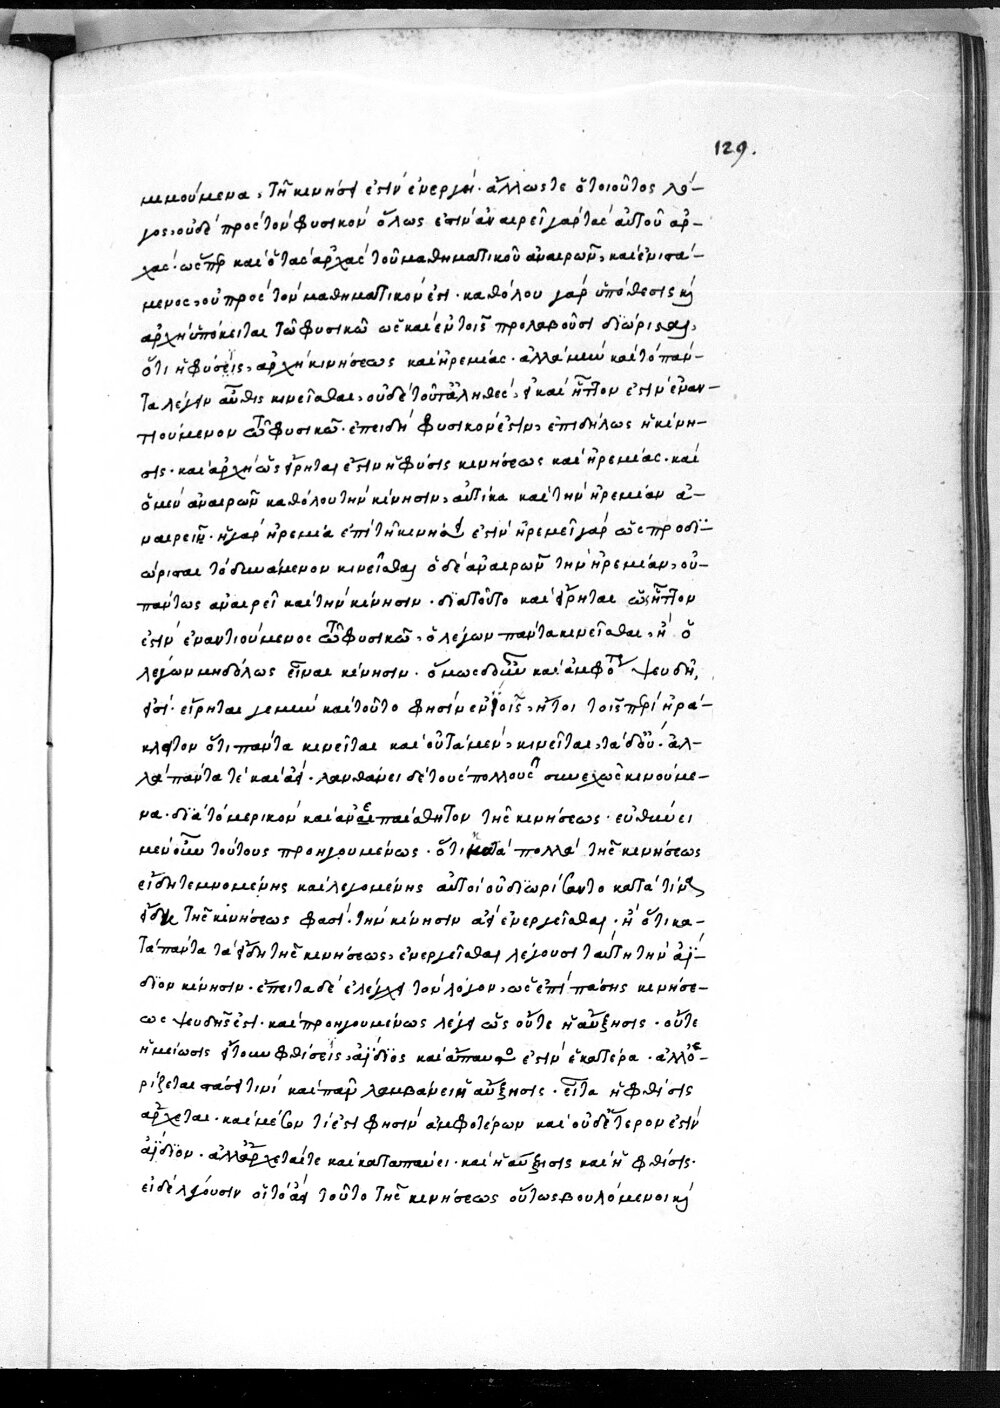 129.
κινούμενα, τῆ κινήσει ἐστὶν ἐνεργεία. ἄλλως τε ὁ τοιοῦτος λό-
γος, οὐδὲ πρὸς τὸν φυσικὸν ὅλως ἐστὶν ἀναιρεῖ γὰρ τὰς αὐτοῦ ἀρ-
χάς. ὥσπερ καὶ ὁ τὰς ἀρχὰς τοῦ μαθηματικοῦ ἀναιρῶν, καὶ ἐνιστά-
μενος, οὐ πρὸς τὸν μαθηματικόν ἐστι. καθόλου γὰρ ὑπόθεσις καὶ
ἀρχὴ ὑπόκειται τῶ φυσικῶ ὡς καὶ ἐν τοῖς προλαβοῦσι διώρισται,
ὅτι ἡ φύσις, ἀρχὴ κινήσεως καὶ ἠρεμίας. ἀλλὰ μὴν καὶ τὸ πάν-
τα λέγειν αὖθις κινεῖσθαι, οὐδὲ τοῦτ' ἀληθές, εἰ καὶ ἧττον ἐστὶν ἐναν-
τιούμενον τῶ φυσικῶ. ἐπειδὴ φυσικόν ἐστιν, ἐπιδήλως ἡ κίνη-
σις. καὶ ἀρχὴ ὡς εἴρηται ἐστὶν ἡ φύσις κινήσεως καὶ ἠρεμίας. καὶ
ὁ μὲν ἀναιρῶν καθόλου τὴν κίνησιν, αὐτίκα καὶ τὴν ἠρεμίαν ἀ-
ναιρεῖ. ἡ γὰρ ἠρεμία ἐπὶ τῆ κινήσει ἐστὶν ἠρεμεῖ γὰρ ὡς προδι-
ώρισται τὸ δυνάμενον κινεῖσθαι ὁ δὲ ἀναιρῶν τὴν ἠρεμίαν, οὐ-
πάντως ἀναιρεῖ καὶ τὴν κίνησιν. διατοῦτο καὶ εἴρηται ὡς ἧττον
ἐστὶν ἐναντιούμενος τῶ φυσικῶ, ὁ λέγων πάντα κινεῖσθαι, ἢ ὁ
λέγων μηδόλως εἶναι κίνησιν. ὅμως δ' οὖν καὶ ἀμφότερα ψευδῆ,
εἰσί. εἴρηται γε μὴν καὶ τοῦτο φησὶν ἐν τοῖς, ἤτοι τοῖς περὶ ἡρά-
κλειτον ὅτι πάντα κινεῖται καὶ οὐ τὰ μὲν, κινεῖται, τὰ δ' οὔ. ἀλ-
λὰ πάντα τὲ καὶ ἀεί. λανθάνει δὲ τοὺς πολλοὺς συνεχῶς κινούμε-
να. διὰ τὸ μερικὸν καὶ ἀνεπαίσθητον τῆς κινήσεως. εὐθύνει
μὲν οὖν τούτους προηγουμένως. ὅτι κατὰ πολλὰ τῆς κινήσεως
εἴδη τεμνομένης καὶ λεγομένης αὐτοὶ οὐ διωρίζοντο κατὰ τίνος
εἴδους τῆς κινήσεως φασί. τὴν κίνησιν ἀεὶ ἐνεργεῖσθαι, ἢ ὅτι κα-
τὰ πάντα τὰ εἴδη τῆς κινήσεως, ἐνεργεῖσθαι λέγουσι ταύτην τὴν ἀΐ-
διον κίνησιν. ἔπειτα δὲ ἐλέγχει τὸν λόγον, ὡς ἐπὶ πάσης κινήσε-
ως ψευδής ἐστι. καὶ προηγουμένως λέγει ὡς οὔτε ἡ αὔξησις. οὔτε
ἡ μείωσις ἤτουν φθίσις, ἀΐδιος καὶ ἄπαυστος ἐστὶν ἑκατέρα. ἀλλ' ὁ-
ρίζεται στάσει τινὶ καὶ παῦλαν λαμβάνει ἡ αὔξησις. εἶτα ἡ φθίσις
ἄρχεται. καὶ μέσον τί ἐστι φησὶν ἀμφοτέρων καὶ οὐδέτερον ἐστὶν
ἀΐδιον. ἀλλ' ἄρχεταί τε καὶ καταπαύει. καὶ ἡ αὔξησις καὶ ἡ φθίσις.
εἰ δὲ λέγουσιν οἱ τὸ ἀεὶ τοῦτο τῆς κινήσεως οὕτως βουλόμενοι καὶ